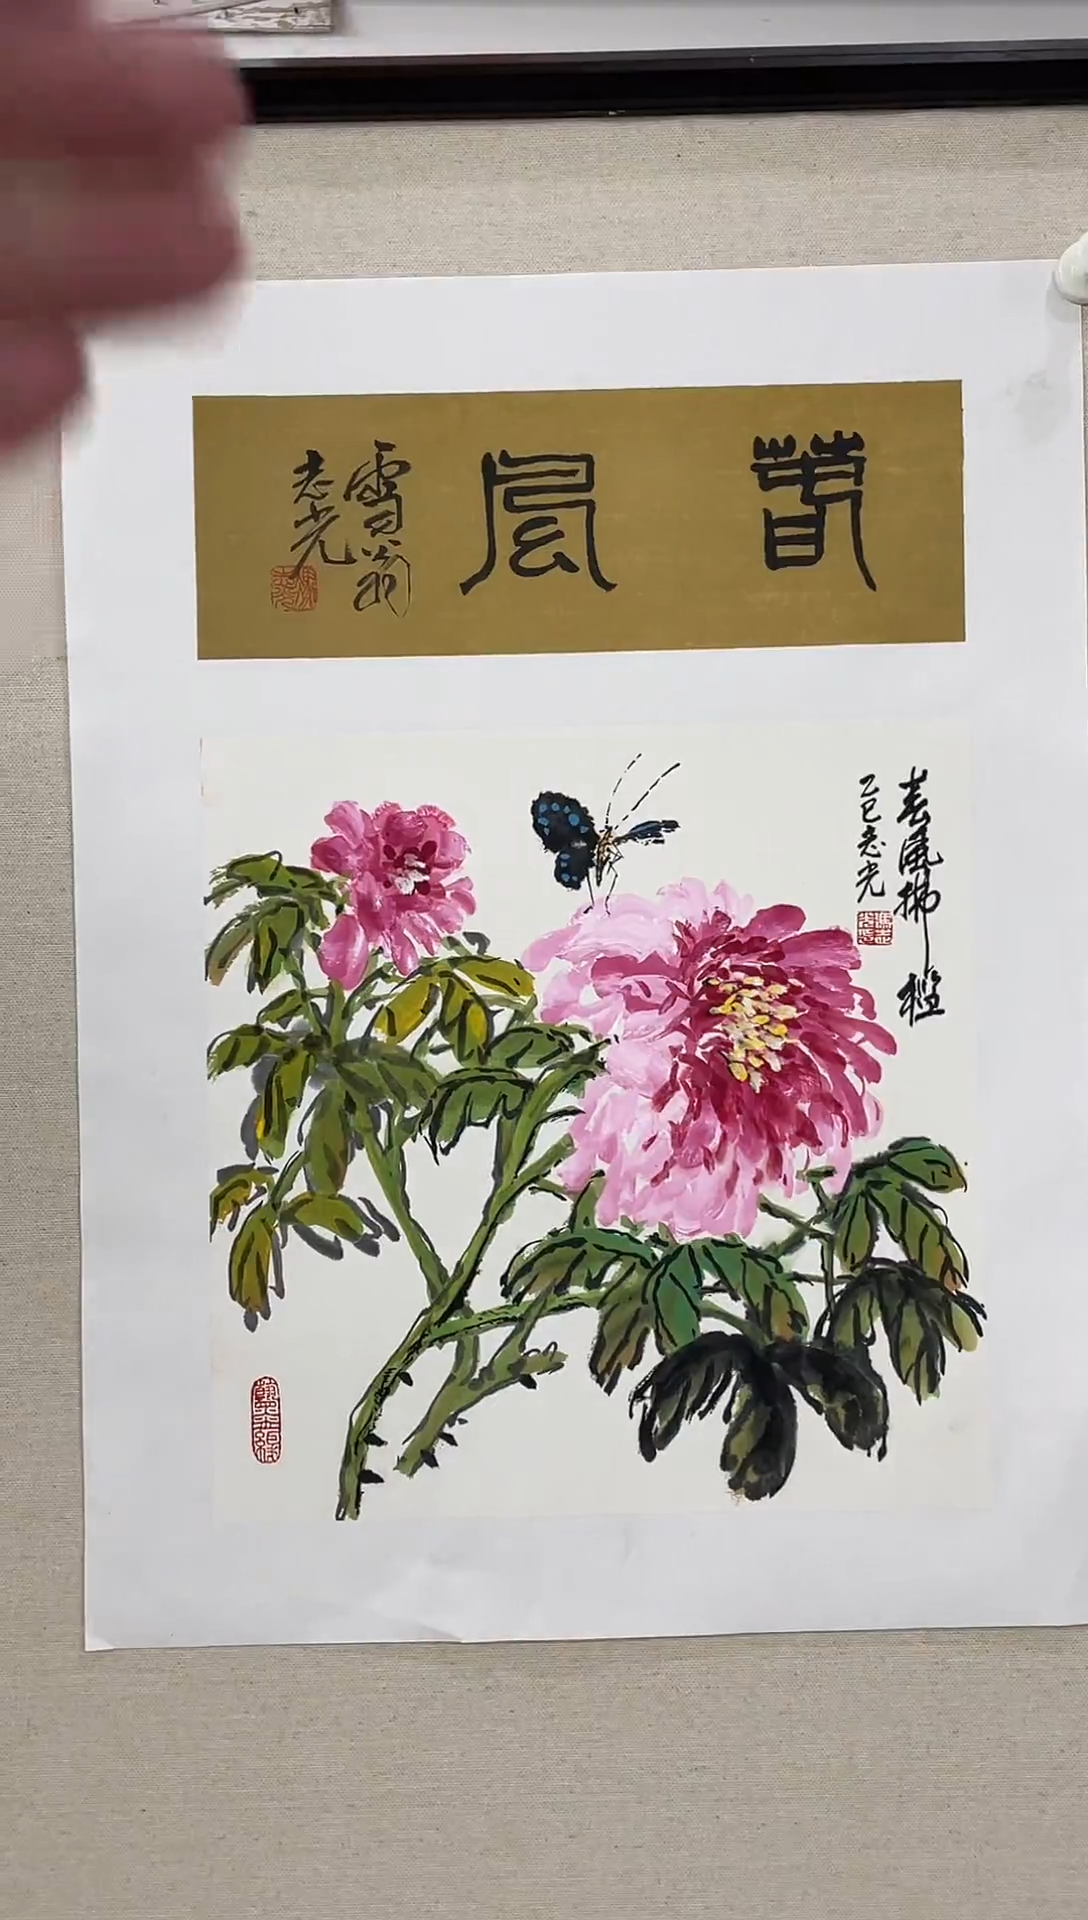 春風
雪翁
志光
春風拂檻
乙巳志光